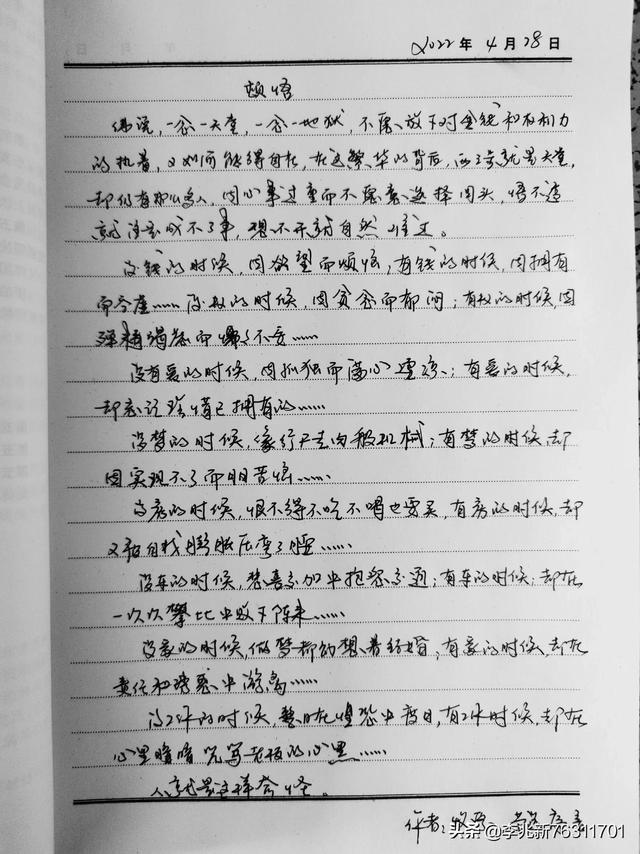 2022年4月28日
顿悟
佛说，一念一天堂，一念一地狱，不愿放下对金钱和权利力
的执着，又如何能得自在，在这繁华的背后，就是天堂，
却仍有那么多人，因心事过重而不愿意选择回头，悟不透
就注定成不了事，想不开就自然
没钱的时候，因欲望而烦恼；有钱的时候，因拥有
而贪……没权的时候，因贫念而郁闷；有权的时候，因
弹精竭虑而不安……
没有爱的时候，因孤独而满心；有爱的时候，
却忘记珍惜已拥有的……
没梦的时候，像行尸走肉般机械；有梦的时候，却
因实现不了而苦恼……
没房的时候，恨不得不吃不喝也要买，有房的时候，却
又被自我膨胀压弯了腰……
没车的时候，悲喜交加中抱怨交通；有车的时候，却在
一次次攀比中败下阵来……
没家的时候，做梦都想着结婚；有家的时候，却在
责任和诱惑中游离……
没工作的时候，整日在惶恐中度日，有工作时候，却在
心里暗暗咒骂老板的心黑……
人就是这样奇怪。
作者：
头条@李兆新76311701